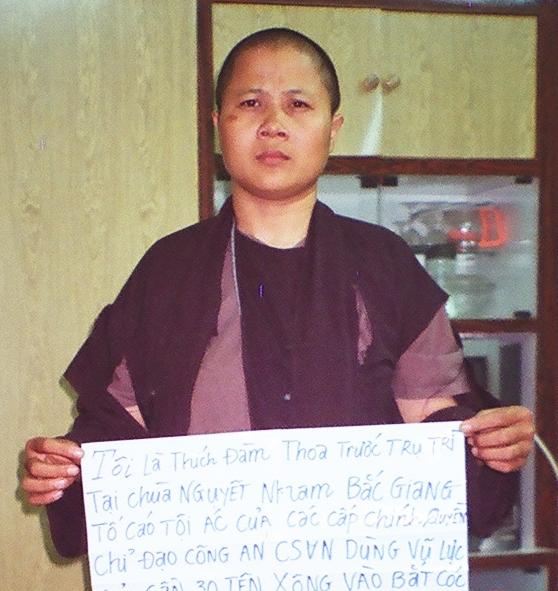 Tôi Là Thích Đàm Thoa Trước TRỤ TRÌ
Tại chùa NGUYỆT Nham BẮC GIANG
TỐ CÁO TỘI ÁC CỦA các cấp chính quyền
Chỉ ĐẠO CÔNG AN CSVN DÙNG Vũ Lực
GẦN 30 TÊN XÔNG VÀO BẮT CÓC